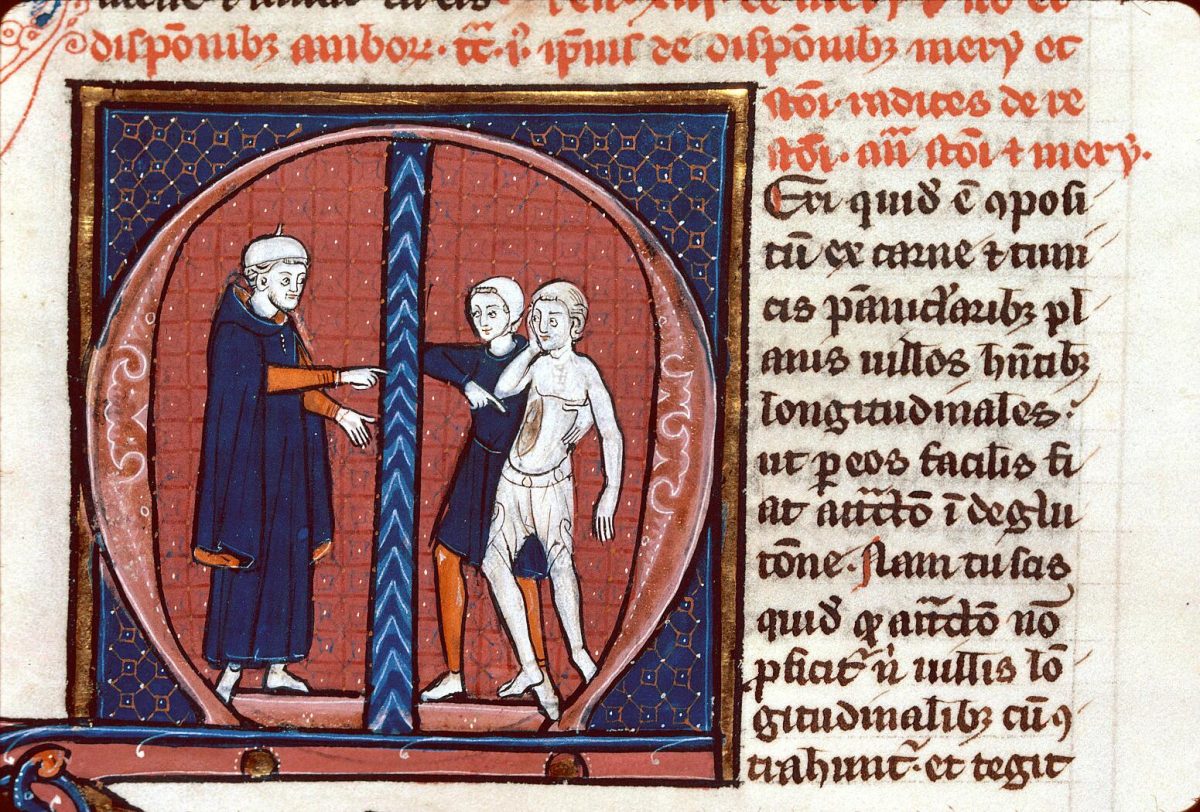 dispōnibꝫ amboꝝ. t̄c. i. ip̄ius de dispōnibꝫ mery et
stōi. radices de re
stōi. an̄ stōi ⁊ mery.
Eri quid ē ꝯposi
tū ex carne ⁊ tuni
cis
anis uillos hn̄tibꝫ
longitudinales.
ut ꝑ eos facilis fi
at at̄ctō ī deglu
tōne. Nam tu scis
quid ꝙ at̄ctō nō
ꝑficit᷑ n̄ uillis lō
gitudinalibꝫ cū ꝯ
trahunt᷑. et tegit